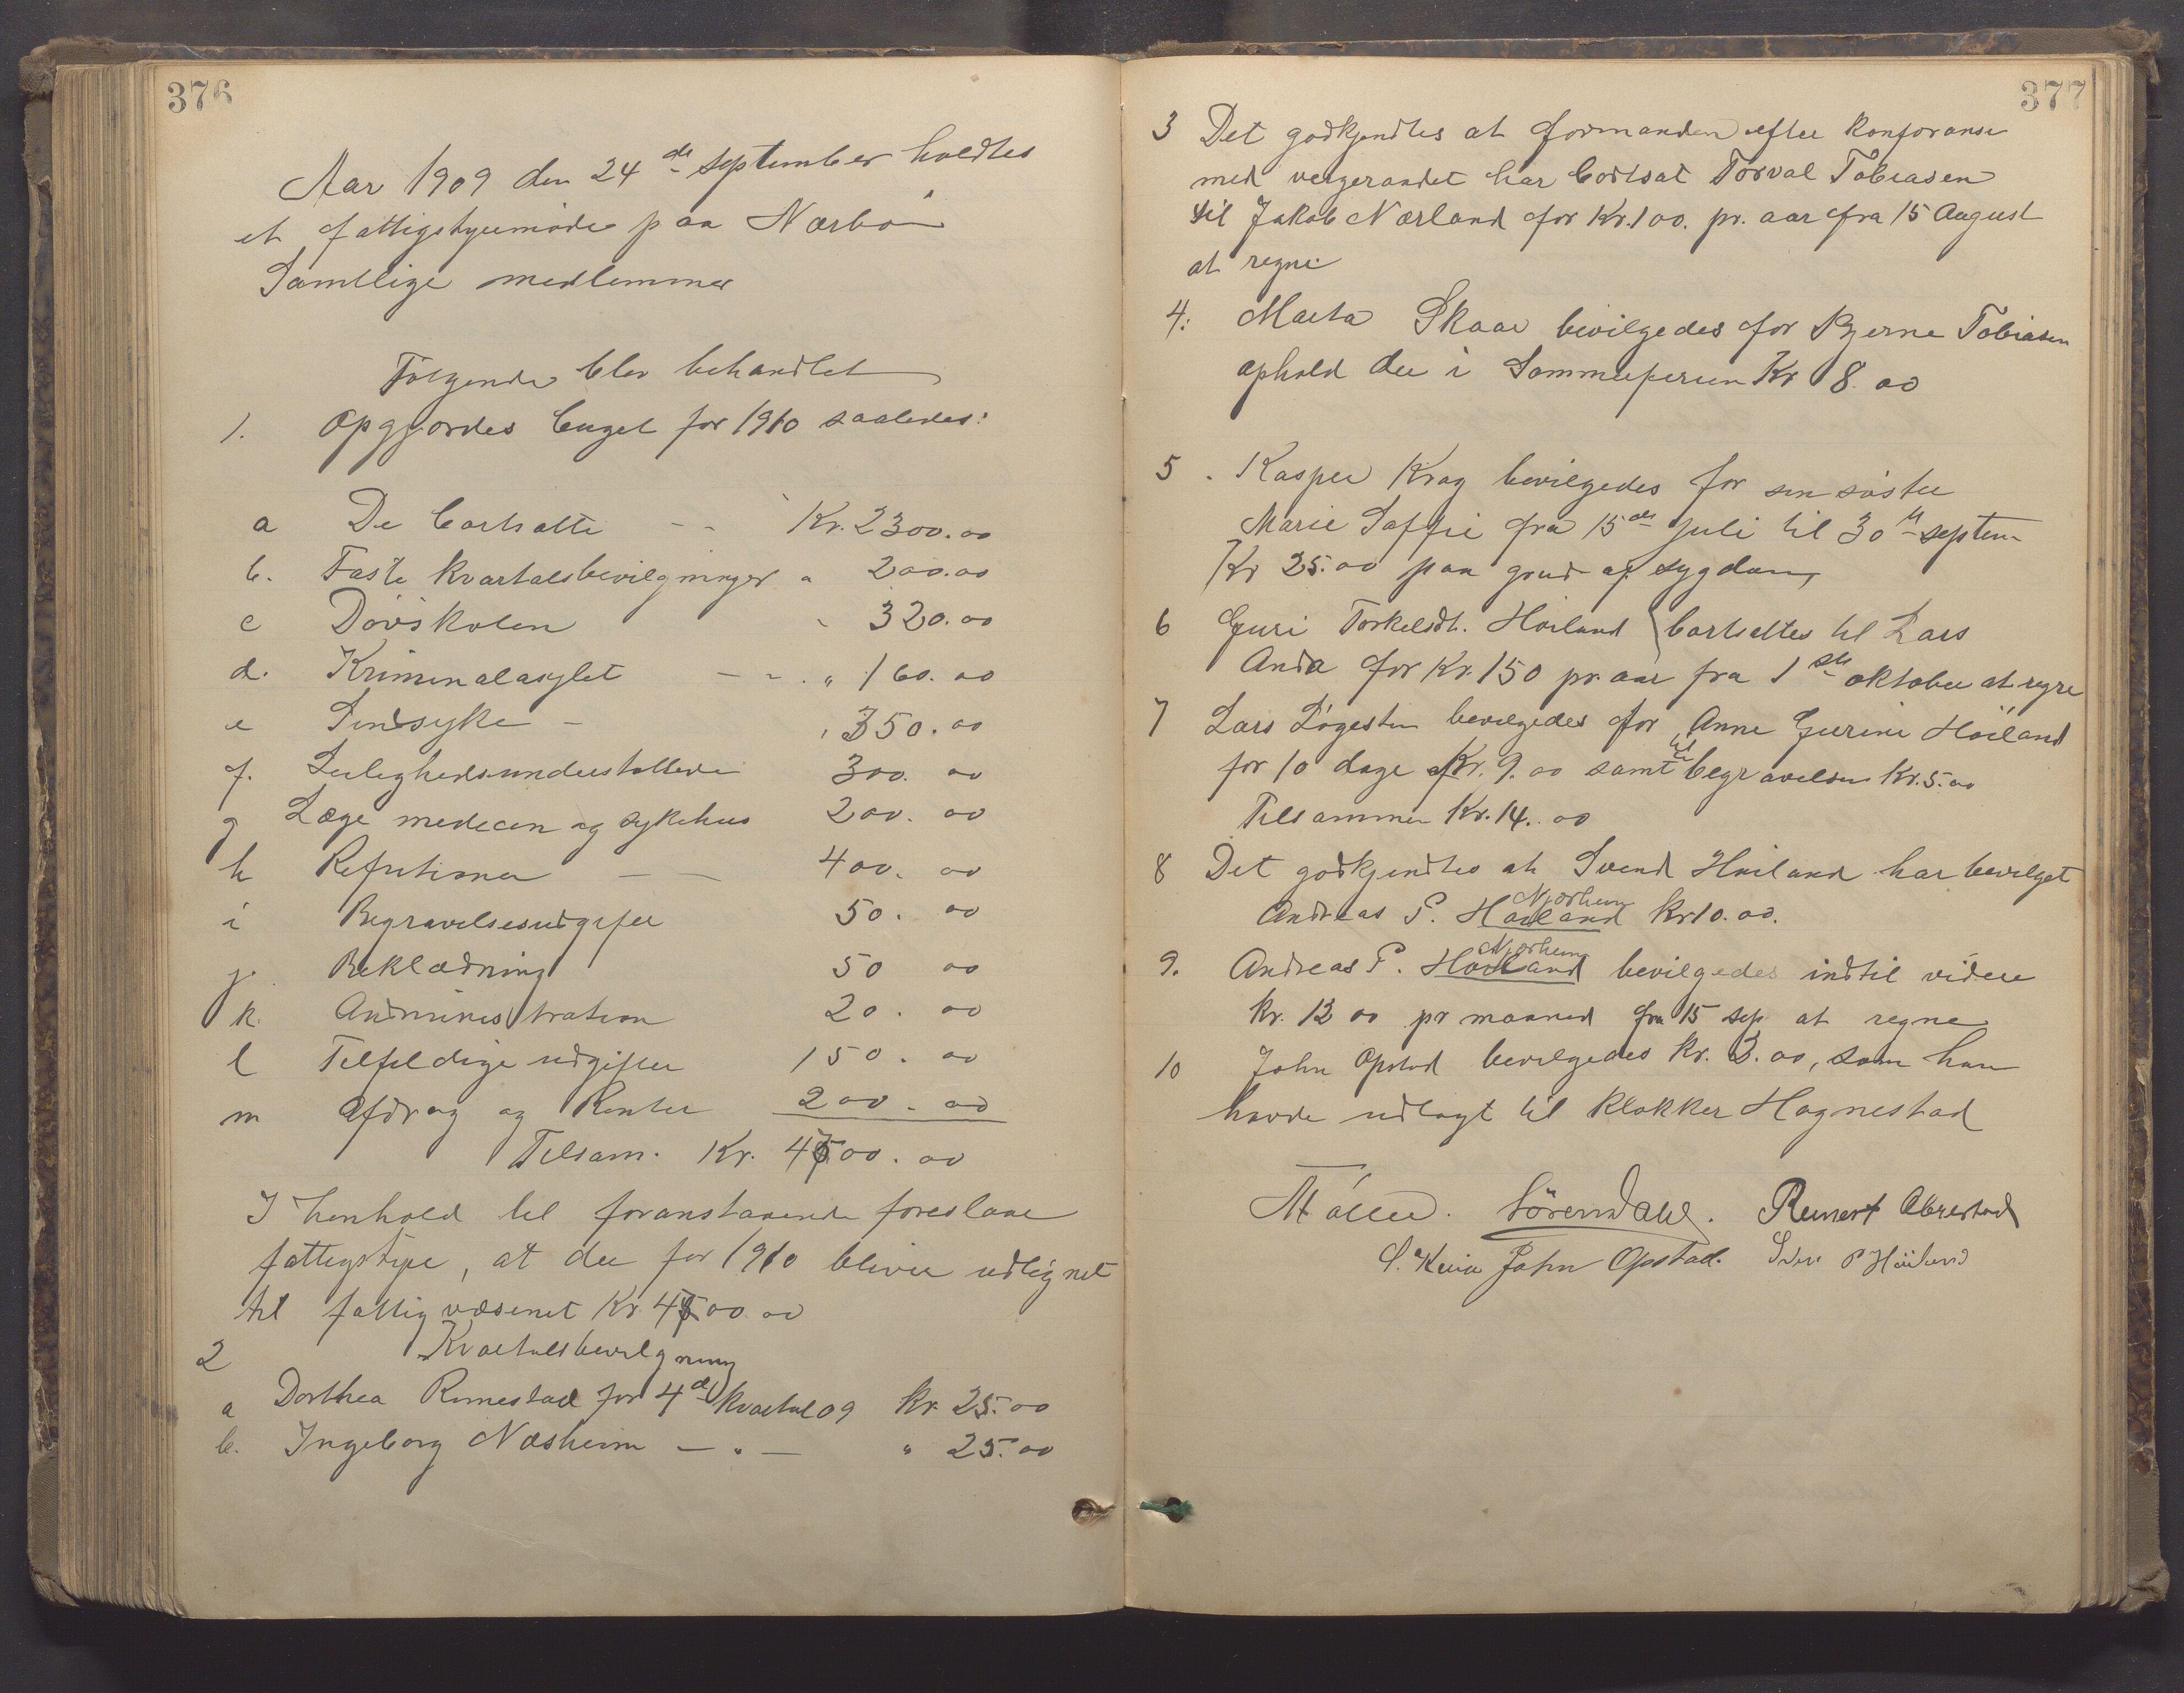 376
Aar 1909 den 24de september holdtes
et fattigstyremöde paa Nærbö
Samtlige medlemmer
Fölgende blev behandlet
1. Opgjordes buget for 1910 saaledes:
a De bortsatte - - Kr. 2300.00
b. Faste kvartalsbevilgninger " 200.00
c Dövskolen " 320.00
d. Kriminalasylet - - . " 160.00
e Sindsyke - " 350.00
f. Leilighedsunderstöttede 300.00
g Læge medecin og sykehus 200.00
h Refutioner - - 400.00
i Begravelsesudgifter 50.00
j. Beklædning 50 00
k. Andministration 20.00
l Tilfeldige udgifter 150.00
m Afdrag og Renter 200.00
Tilsam. Kr. 4700.00
I henhold til foranstaaende foreslaar
fattigstyre, at der for 1910 bliver udlignet
til fattigvæsenet Kr. 4700.00
2 Kvartalsbevilgning
a Dorthea Rimestad for 4de kvartal 09 Kr. 25.00
b. Ingeborg Næsheim — " — " 25.00
377
3 Det godkjendtes at formanden efter konforanse
med vergeraadet har bortsat Torval Tobiasen
til Jakob Nærland for Kr. 100. pr. aar fra 15 August
at regne
4: Marta Skaar bevilgedes for Bjerne Tobiasen
ophold der i Sommerferien Kr 8.00
5. Kasper Krag bevilgedes for sin söster
Marie Saffie fra 15de juli til 30te septem
Kr 25.00 paa grund af sygdom
6 Guri Torkelsdt. Höiland bortsattes til Lars
Anda for Kr. 150 pr. aar fra 1ste oktober at regne
7 Lars Lögesten bevilgedes for Anne Gurine Höiland
for 10 dage Kr. 9.00 samt til begravelsen Kr. 5.00
Tilsammen Kr. 14.00
8 Det godkjendtes at Svend Höiland har bevilget
Njorheim
Andreas P. Höiland Kr 10.00.
Njorheim
9. Andreas P. Höiland bevilgedes indtil videre
Kr. 12 00 pr maaned fra 15 sep. at regne
10 John Opstad bevilgedes Kr. 3.00, som han
havde udlagt til klokker Hognestad
Sören Dahl. Reinert Obrestad
John Opstad. P Höiland